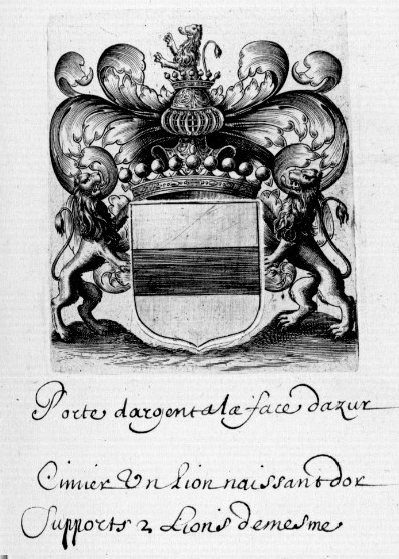 Porte dargent a la face dazur
Cimier Un Lion naissant dor
Supports 2 Lions demesme